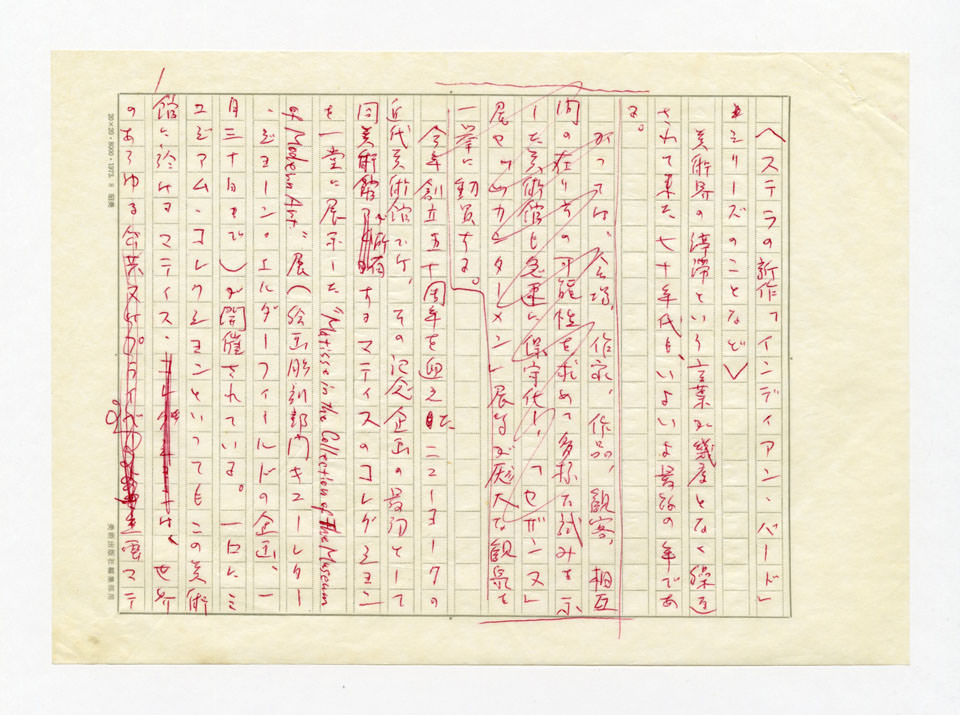 〈ステラの新作「インディアン・バード」
シリーズのことなど〉
美術界の停滞という言葉が幾度となく繰返
されて来た七十年代も、いよいよ最後の年であ
る。
かつては、会場、作家、作品、観客、相互
間の在り方の可能性を求めて多様な試みを示
した美術館も急速に保守化し、「セザンヌ」
展や「ツタンカーメン」展等が厖大な観衆を
一挙に動員する。
今年創立五十周年を迎えたニューヨークの
近代美術館でが、その記念企画の最初として
同美術館が所有するマティスのコレクション
を一堂に展示した "Matisse in the Collection of The Museum
of Modern Art" 展（絵画彫刻部門キューレター
・ジョーン・エルダーフィールドの企画、一
月三十日まで）が開催されている。一口にミ
ュジアム・コレクションといってもこの美術
館に於けるマティス・は、世界
のあらゆる 企画マテ
20×20